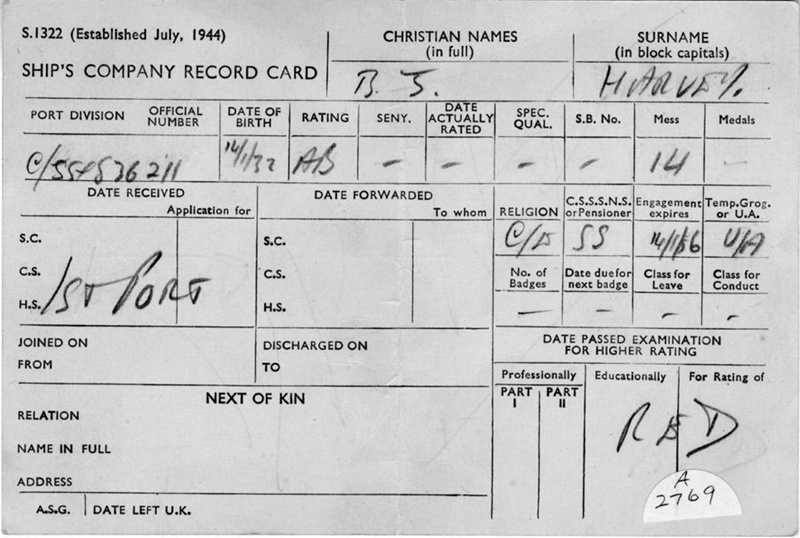 S.1322 (Established July, 1944)
SHIP'S COMPANY RECORD CARD
CHRISTIAN NAMES
(in full)
B. J.
SURNAME
(in block capitals)
HARVEY.
PORT DIVISION OFFICIAL NUMBER DATE OF BIRTH RATING SENY. DATE ACTUALLY RATED SPEC. QUAL. S.B. No. Mess Medals
14/1/32 AB – – – – 14 –
DATE RECEIVED
Application for
S.C.
C.S.
H.S.
1ST PORT
DATE FORWARDED
To whom
S.C.
C.S.
H.S.
RELIGION C.S.S.S.N.S. or Pensioner Engagement expires Temp. Grog. or U.A.
C/E SS 14/1/56 U/A
No. of Badges Date due for next badge Class for Leave Class for Conduct
– – – –
JOINED ON
FROM
DISCHARGED ON
TO
DATE PASSED EXAMINATION
FOR HIGHER RATING
Professionally Educationally For Rating of
PART I PART II
RED
NEXT OF KIN
RELATION
NAME IN FULL
ADDRESS
A.S.G. DATE LEFT U.K.
A
2769